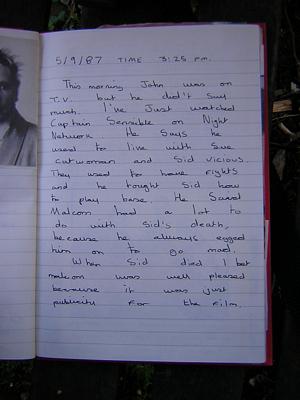 5/9/87 TIME 3:25 pm.
This morning John was on
T.V. but he didn't say
much. I've Just watched
Captain Sensible on Night
Network. He Says he
used to live with Sue
catwoman and Sid Vicious.
They used to have fights
and he tought Sid how
to play base. He Said
Malcom had a lot to
do with Sid's death,
because he always egged
him on to go mad.
When Sid died I bet
malcom was well pleased
because it was just
publicity for the film.